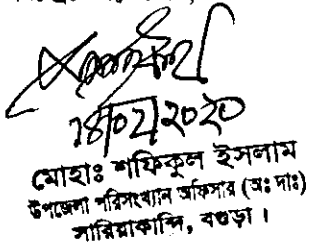 ১৪/০২/২০২০
মোহাঃ শফিকুল ইসলাম
উপজেলা পরিসংখ্যান অফিসার (অঃ দাঃ)
সারিয়াকান্দি, বগুড়া।